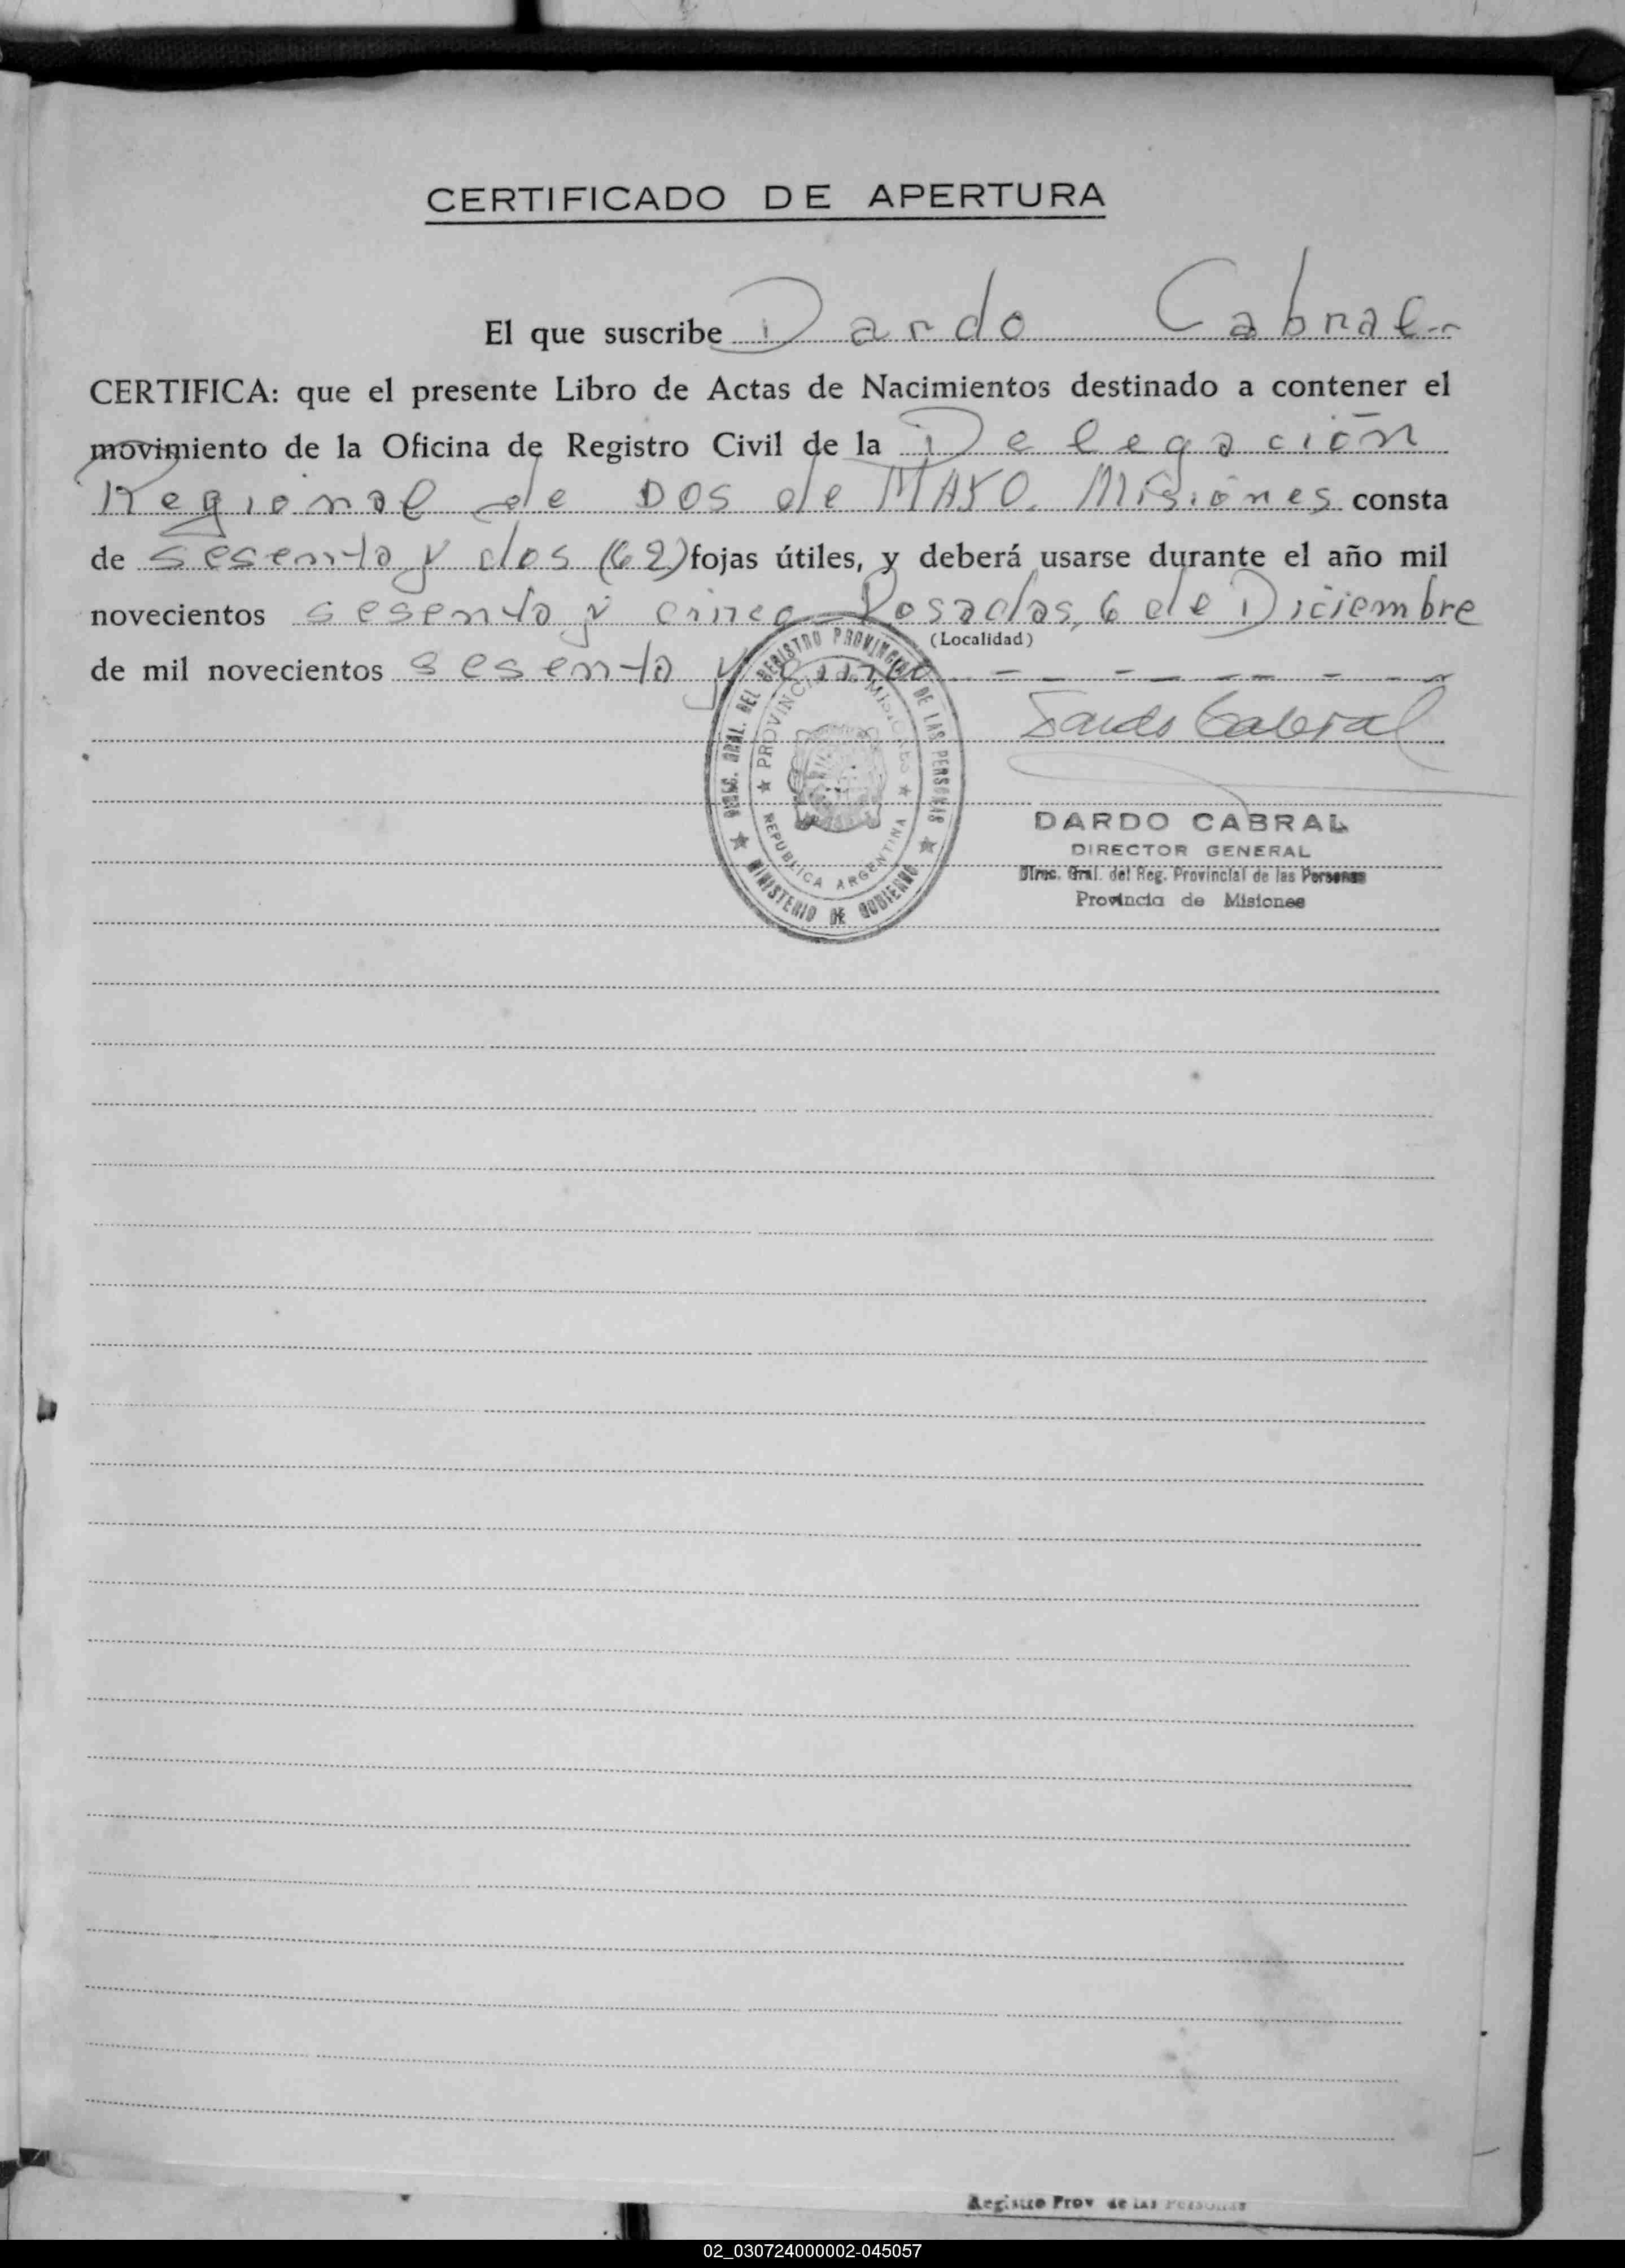 CERTIFICADO DE APERTURA
El que suscribe Dardo Cabral
CERTIFICA: que el presente Libro de Actas de Nacimientos destinado a contener el
movimiento de la Oficina de Registro Civil de la Delegación
Regional de DOS de MAYO. Misiones consta
de sesenta y dos (62) fojas útiles, y deberá usarse durante el año mil
novecientos sesenta y cinco Posadas, 6 de Diciembre
(Localidad)
de mil novecientos sesenta y cinco
Dardo Cabral
DIREC. GRAL. DEL REGISTRO PROVINCIAL DE LAS PERSONAS
PROVINCIA de MISIONES
REPUBLICA ARGENTINA
MINISTERIO DE GOBIERNO
DARDO CABRAL
DIRECTOR GENERAL
Direc. Gral. del Reg. Provincial de las Personas
Provincia de Misiones
Registro Prov de las Personas
02_030724000002-045057